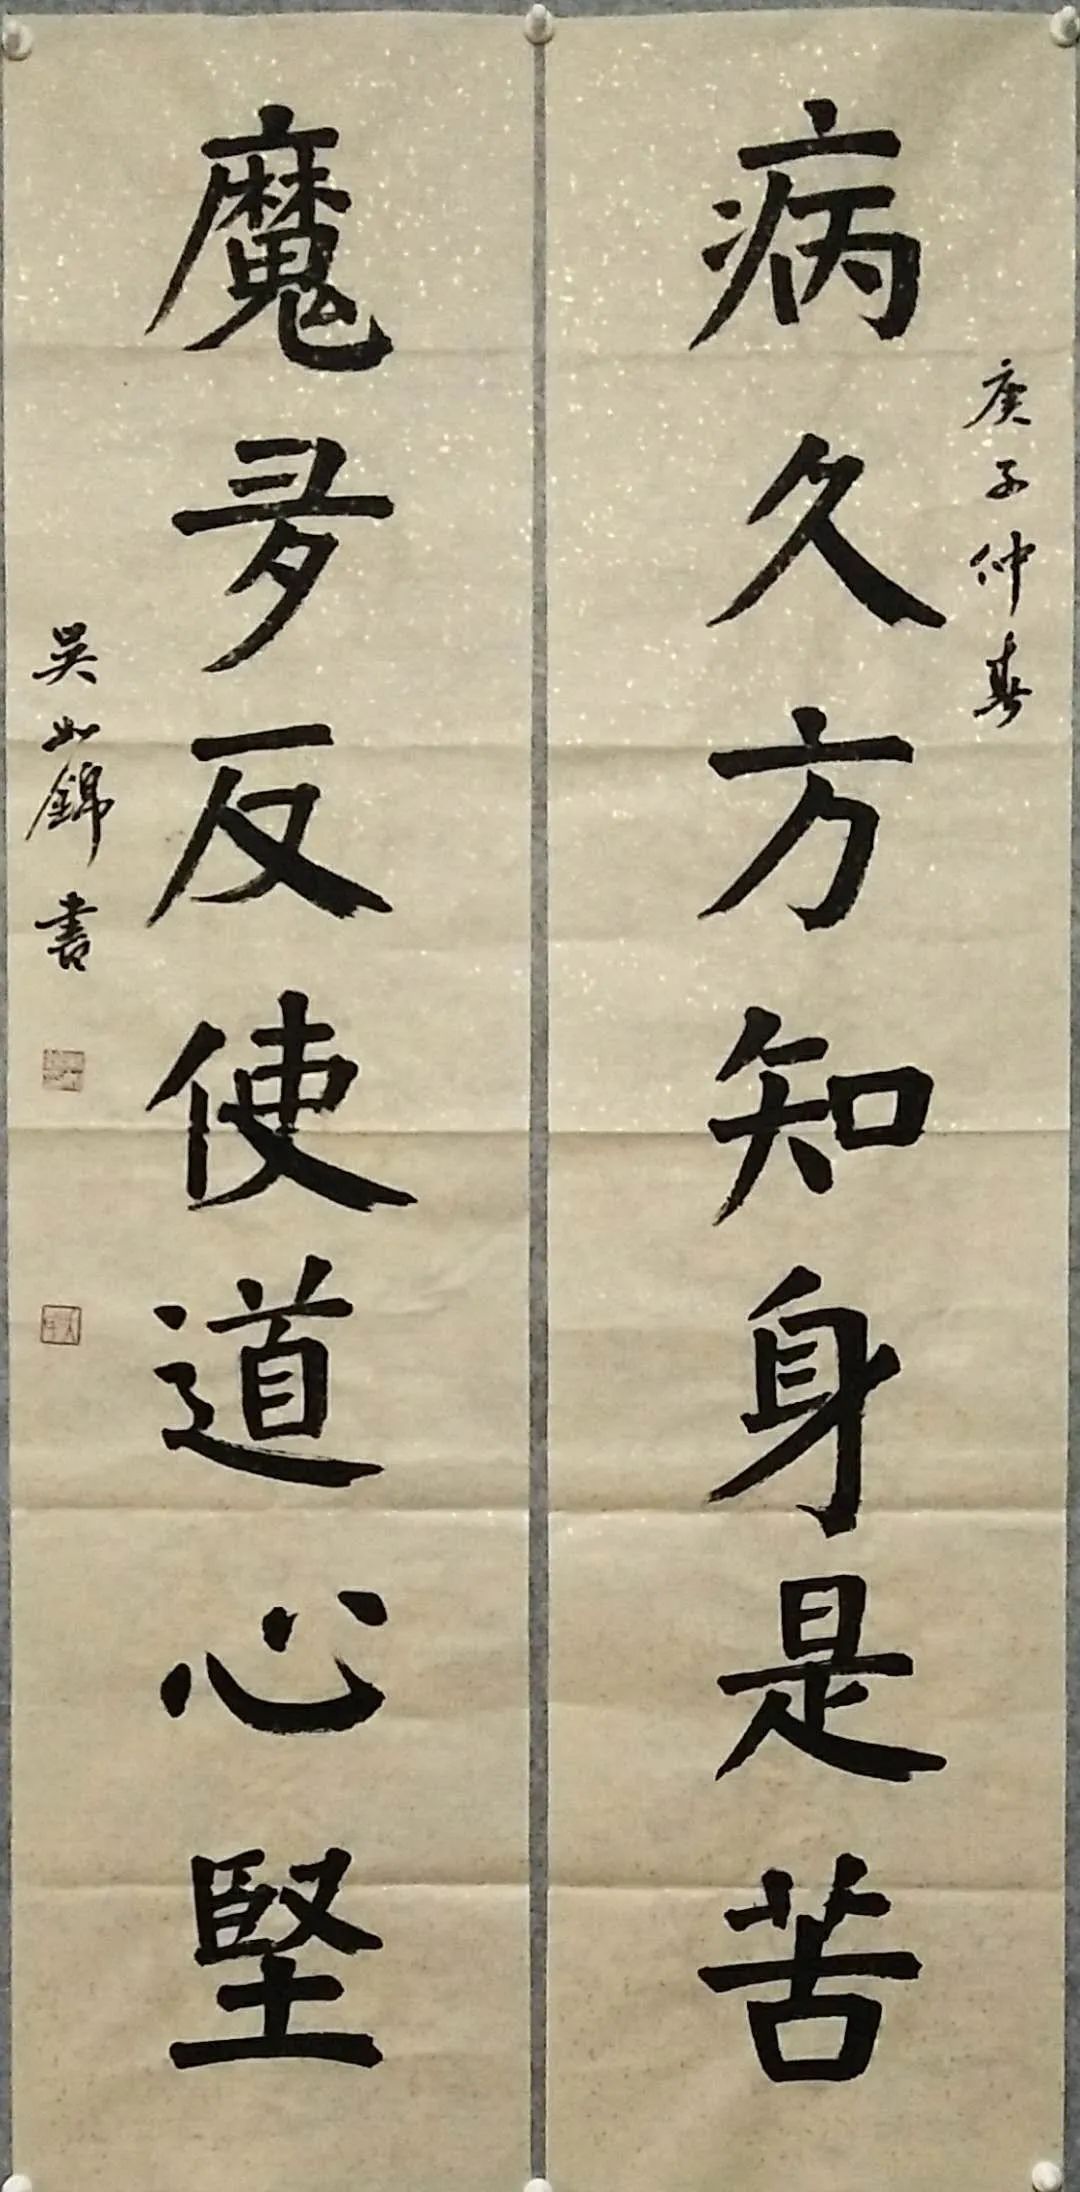 庚子仲春
病久方知身是苦
魔多反使道心堅
吴如錦書